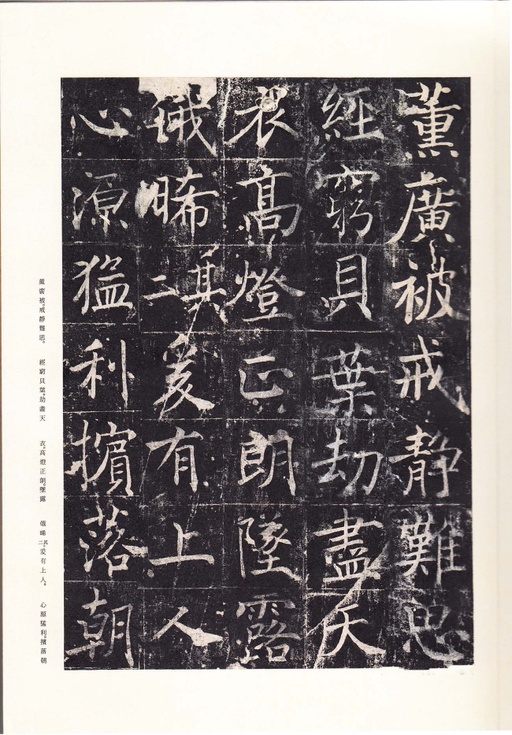 薫廣被戒静難思
經窮貝葉劫盡天
衣髙燈正朗墜露
俄晞其二爰有上人
心源猛利擯落朝
薰廣被。戒靜難思。 經窮貝葉。劫盡天 衣。高燈正朗。墜露 俄晞。其二爰有上人。 心源猛利。擯落朝